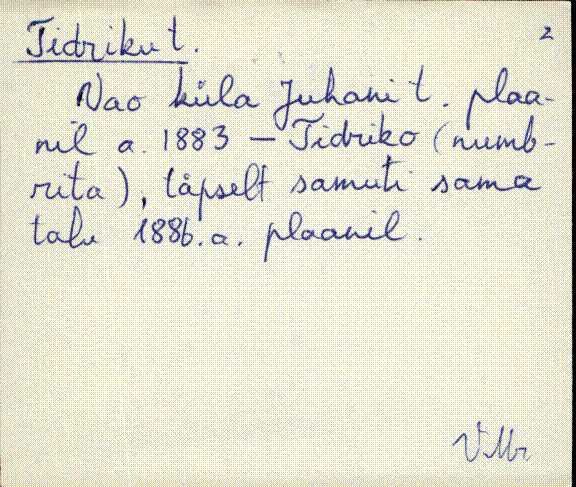 Tidriku t. 2
Nao küla Juhani t. plaa-
nil a. 1883 — Tidriko (numb-
rita), täpselt samuti sama
talu 1886. a. plaanil.